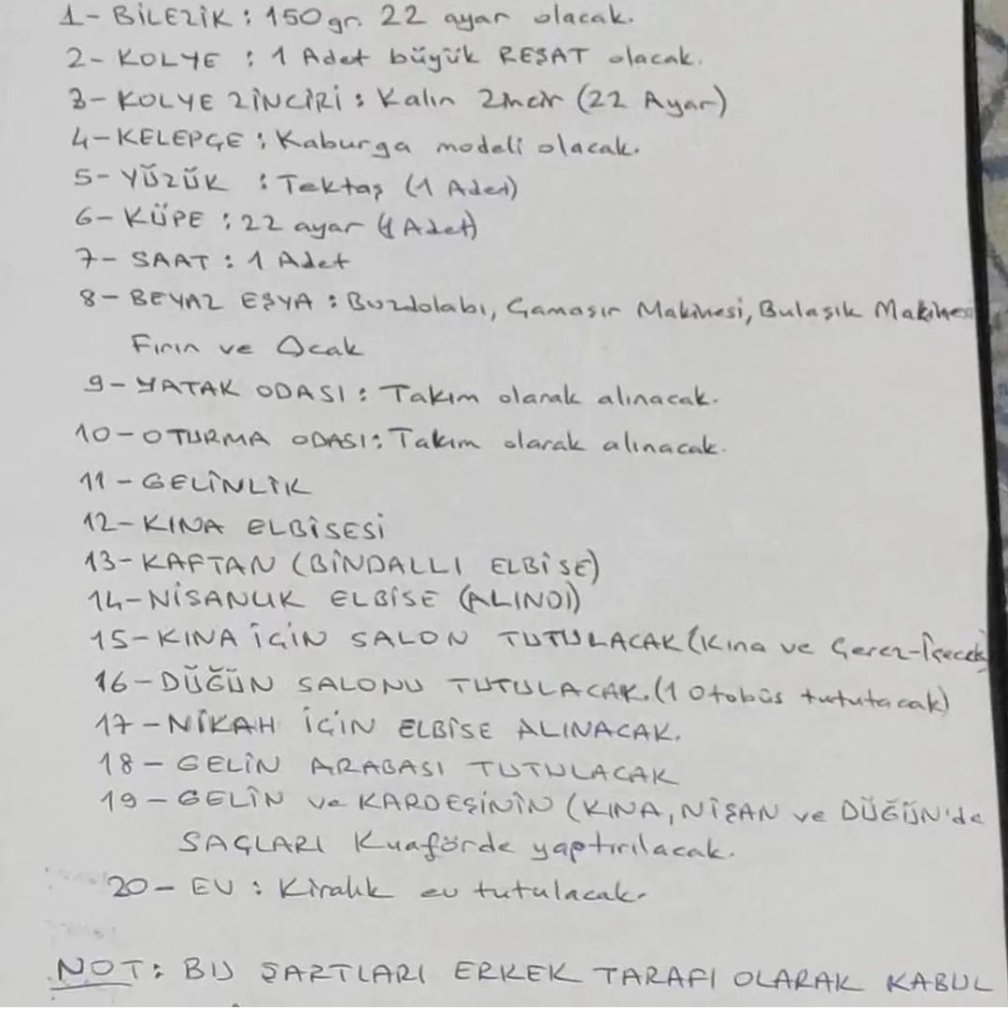 1- BİLEZİK : 150 gr. 22 ayar olacak.
2- KOLYE : 1 Adet büyük REŞAT olacak.
3- KOLYE ZİNCİRİ : Kalın Zincir (22 Ayar)
4- KELEPÇE : Kaburga modeli olacak.
5- YÜZÜK : Tektaş (1 Adet)
6- KÜPE : 22 ayar (1 Adet)
7- SAAT : 1 Adet
8- BEYAZ EŞYA : Buzdolabı, Çamaşır Makinesi, Bulaşık Makinesi
Fırın ve Ocak
9- YATAK ODASI : Takım olarak alınacak.
10- OTURMA ODASI : Takım olarak alınacak.
11- GELİNLİK
12- KINA ELBİSESİ
13- KAFTAN (BİNDALLI ELBİSE)
14- NİŞANLIK ELBİSE (ALINDI)
15- KINA İÇİN SALON TUTULACAK (Kına ve Çerez-İçecek)
16- DÜĞÜN SALONU TUTULACAK. (1 Otobüs tutulacak)
17- NİKAH İÇİN ELBİSE ALINACAK.
18- GELİN ARABASI TUTULACAK
19- GELİN ve KARDEŞİNİN (KINA, NİŞAN ve DÜĞÜN'de
SAÇLARI Kuaförde yaptırılacak.
20- EV : Kiralık ev tutulacak.
NOT : BU ŞARTLARI ERKEK TARAFI OLARAK KABUL